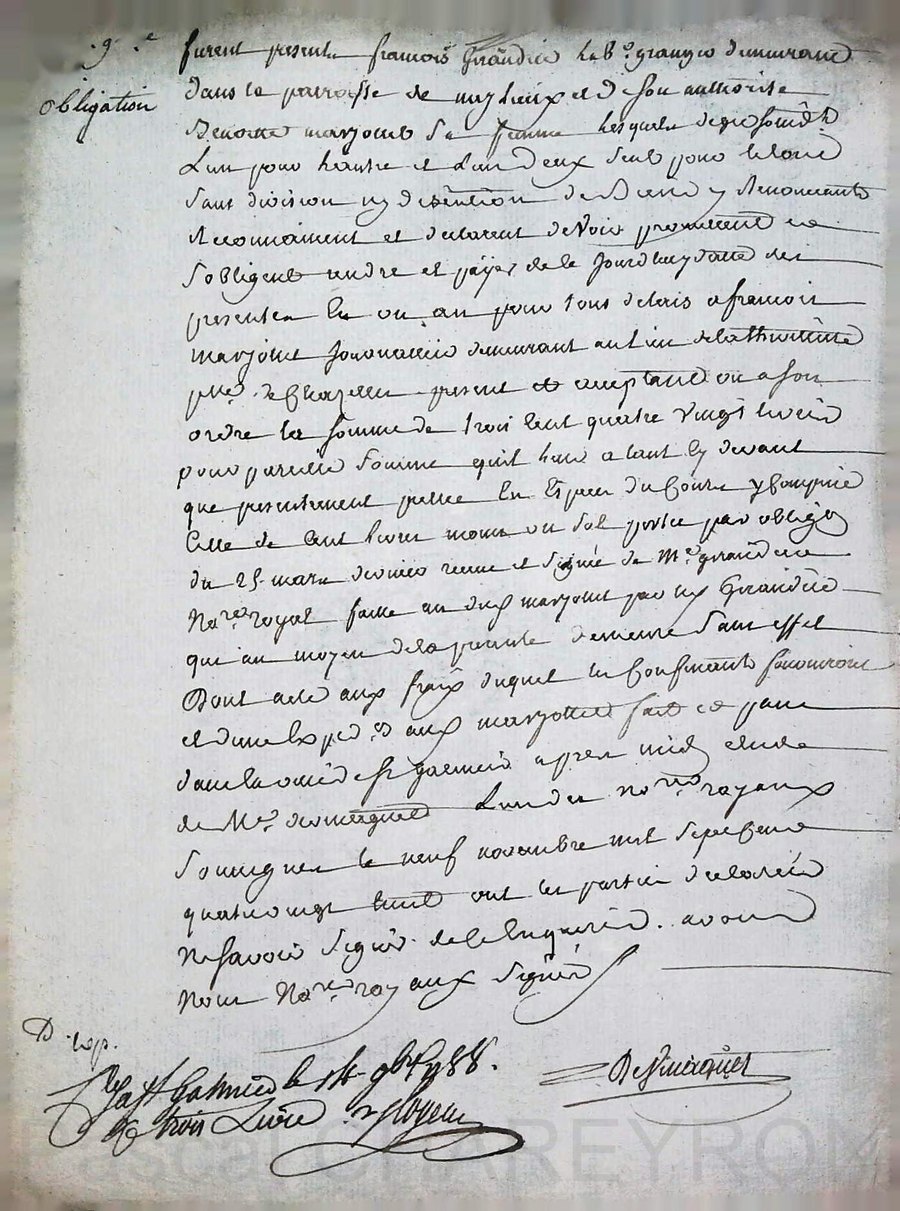 9e
obligation
furent presents francois Giraudier hab. granger demeurant
dans la parroisse de meylieux et de son authorité
Benoitte marjollet sa femme lesquels degré solidt
L'un pour l'autre et l'un deux seul pour le tout
sans division ny discution de Biens y Renonceants
Reconnoissent et declarent devoir promettent et
s'obligent rendre et payer de ce Jourdhuy datte des
presentes En un an pour tous delais a francois
marjollet Journallier demeurant au lieu de
psse de Chazelles present et acceptant ou a son
ordre la somme de trois Cent quatre vingt livres
pour pareille somme quil leur a tant Cy devant
que presentement prettée En Espece du Cours y Compris
Celle de Cent livres moins un sol portée par obligon
du 25 mars dernier reçue et signée de Me girauderie
Nore royal faitte au dit marjollet par les Giraudier
qui au moyen de la presente demeure sans effet
Dont acte aux fraix duquel les Confessants fourniront
et d'une Expedon aux marjollet fait et passé
dans la ville de st galmier apres midy etude
de Me demeiquet L'un des nores royaux
soussignes le neuf novembre mil sept Cent
quatrevingt huit ont les parties declarés
ne savoir signer de ce Enquis. avons
nous Nores royaux signés
D. Exp.
Cle a st Galmier le 14 9bre 1788.
R trois Livre
Demeiquet
Pascal CHAREYRON